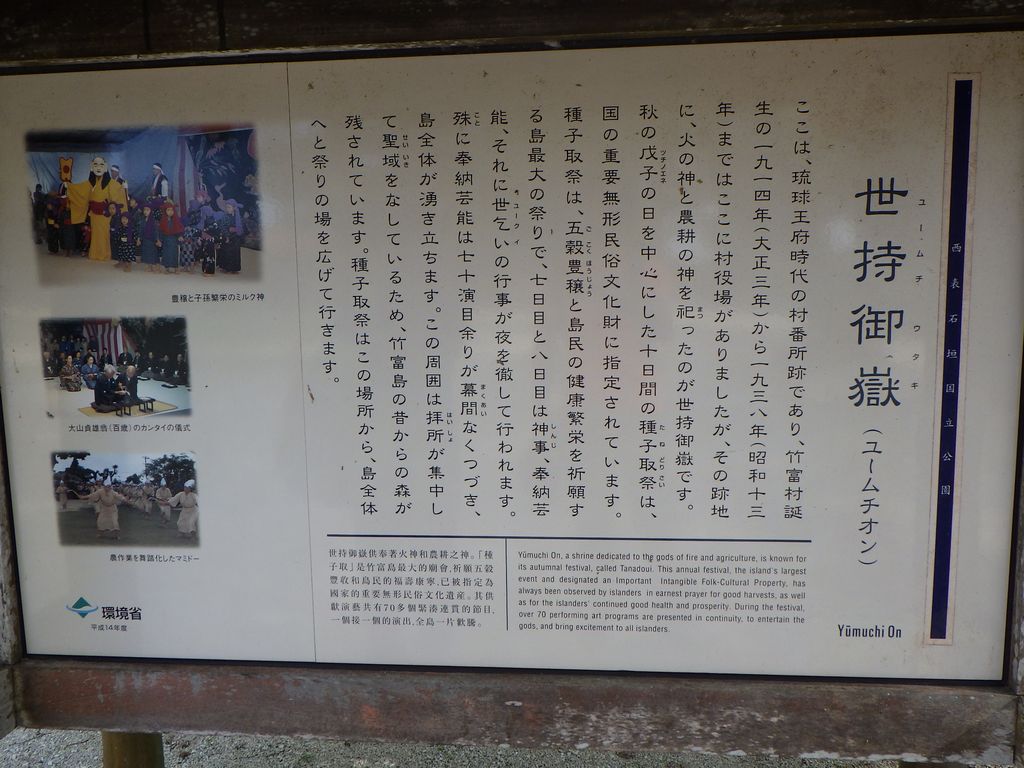 西表石垣国立公園
世持御嶽(ユームチオン)
ユームチ ウタキ
ここは、琉球王府時代の村番所跡であり、竹富村誕
生の一九一四年(大正三年)から一九三八年(昭和十三
年)まではここに村役場がありましたが、その跡地
に、火の神と農耕の神を祀ったのが世持御嶽です。
まつ
秋の戊子の日を中心にした十日間の種子取祭は、
ツチノエネ
たねどりさい
国の重要無形民俗文化財に指定されています。
種子取祭は、五穀豊穣と島民の健康繁栄を祈願す
ごこくほうじょう
る島最大の祭りで、七日目と八日目は神事、奉納芸
しんじ
能、それに世乞いの行事が夜を徹して行われます。
殊に奉納芸能は七十演目余りが幕間なくつづき、
こと
まくあい
島全体が湧き立ちます。この周囲は拝所が集中し
はいしょ
て聖域をなしているため、竹富島の昔からの森が
せいいき
残されています。種子取祭はこの場所から、島全体
へと祭りの場を広げて行きます。
豊穣と子孫繁栄のミルク神
大山貞雄翁(百歳)のカンタイの儀式
農作業を舞踏化したマミドー
環境省
平成14年度
世持御嶽供奉著火神和農耕之神。「種
子取」是竹富島最大的廟會,祈願五穀
豐收和島民的福壽康寧,已被指定為
國家的重要無形民俗文化遺産。其供
獻演藝共有70多個緊湊連貫的節目,
一個接一個的演出,全島一片歡騰。
Yūmuchi On, a shrine dedicated to the gods of fire and agriculture, is known for
its autumnal festival, called Tanadoui. This annual festival, the island's largest
event and designated an Important Intangible Folk-Cultural Property, has
always been observed by islanders in earnest prayer for good harvests, as well
as for the islanders' continued good health and prosperity. During the festival,
over 70 performing art programs are presented in continuity, to entertain the
gods, and bring excitement to all islanders.
Yūmuchi On